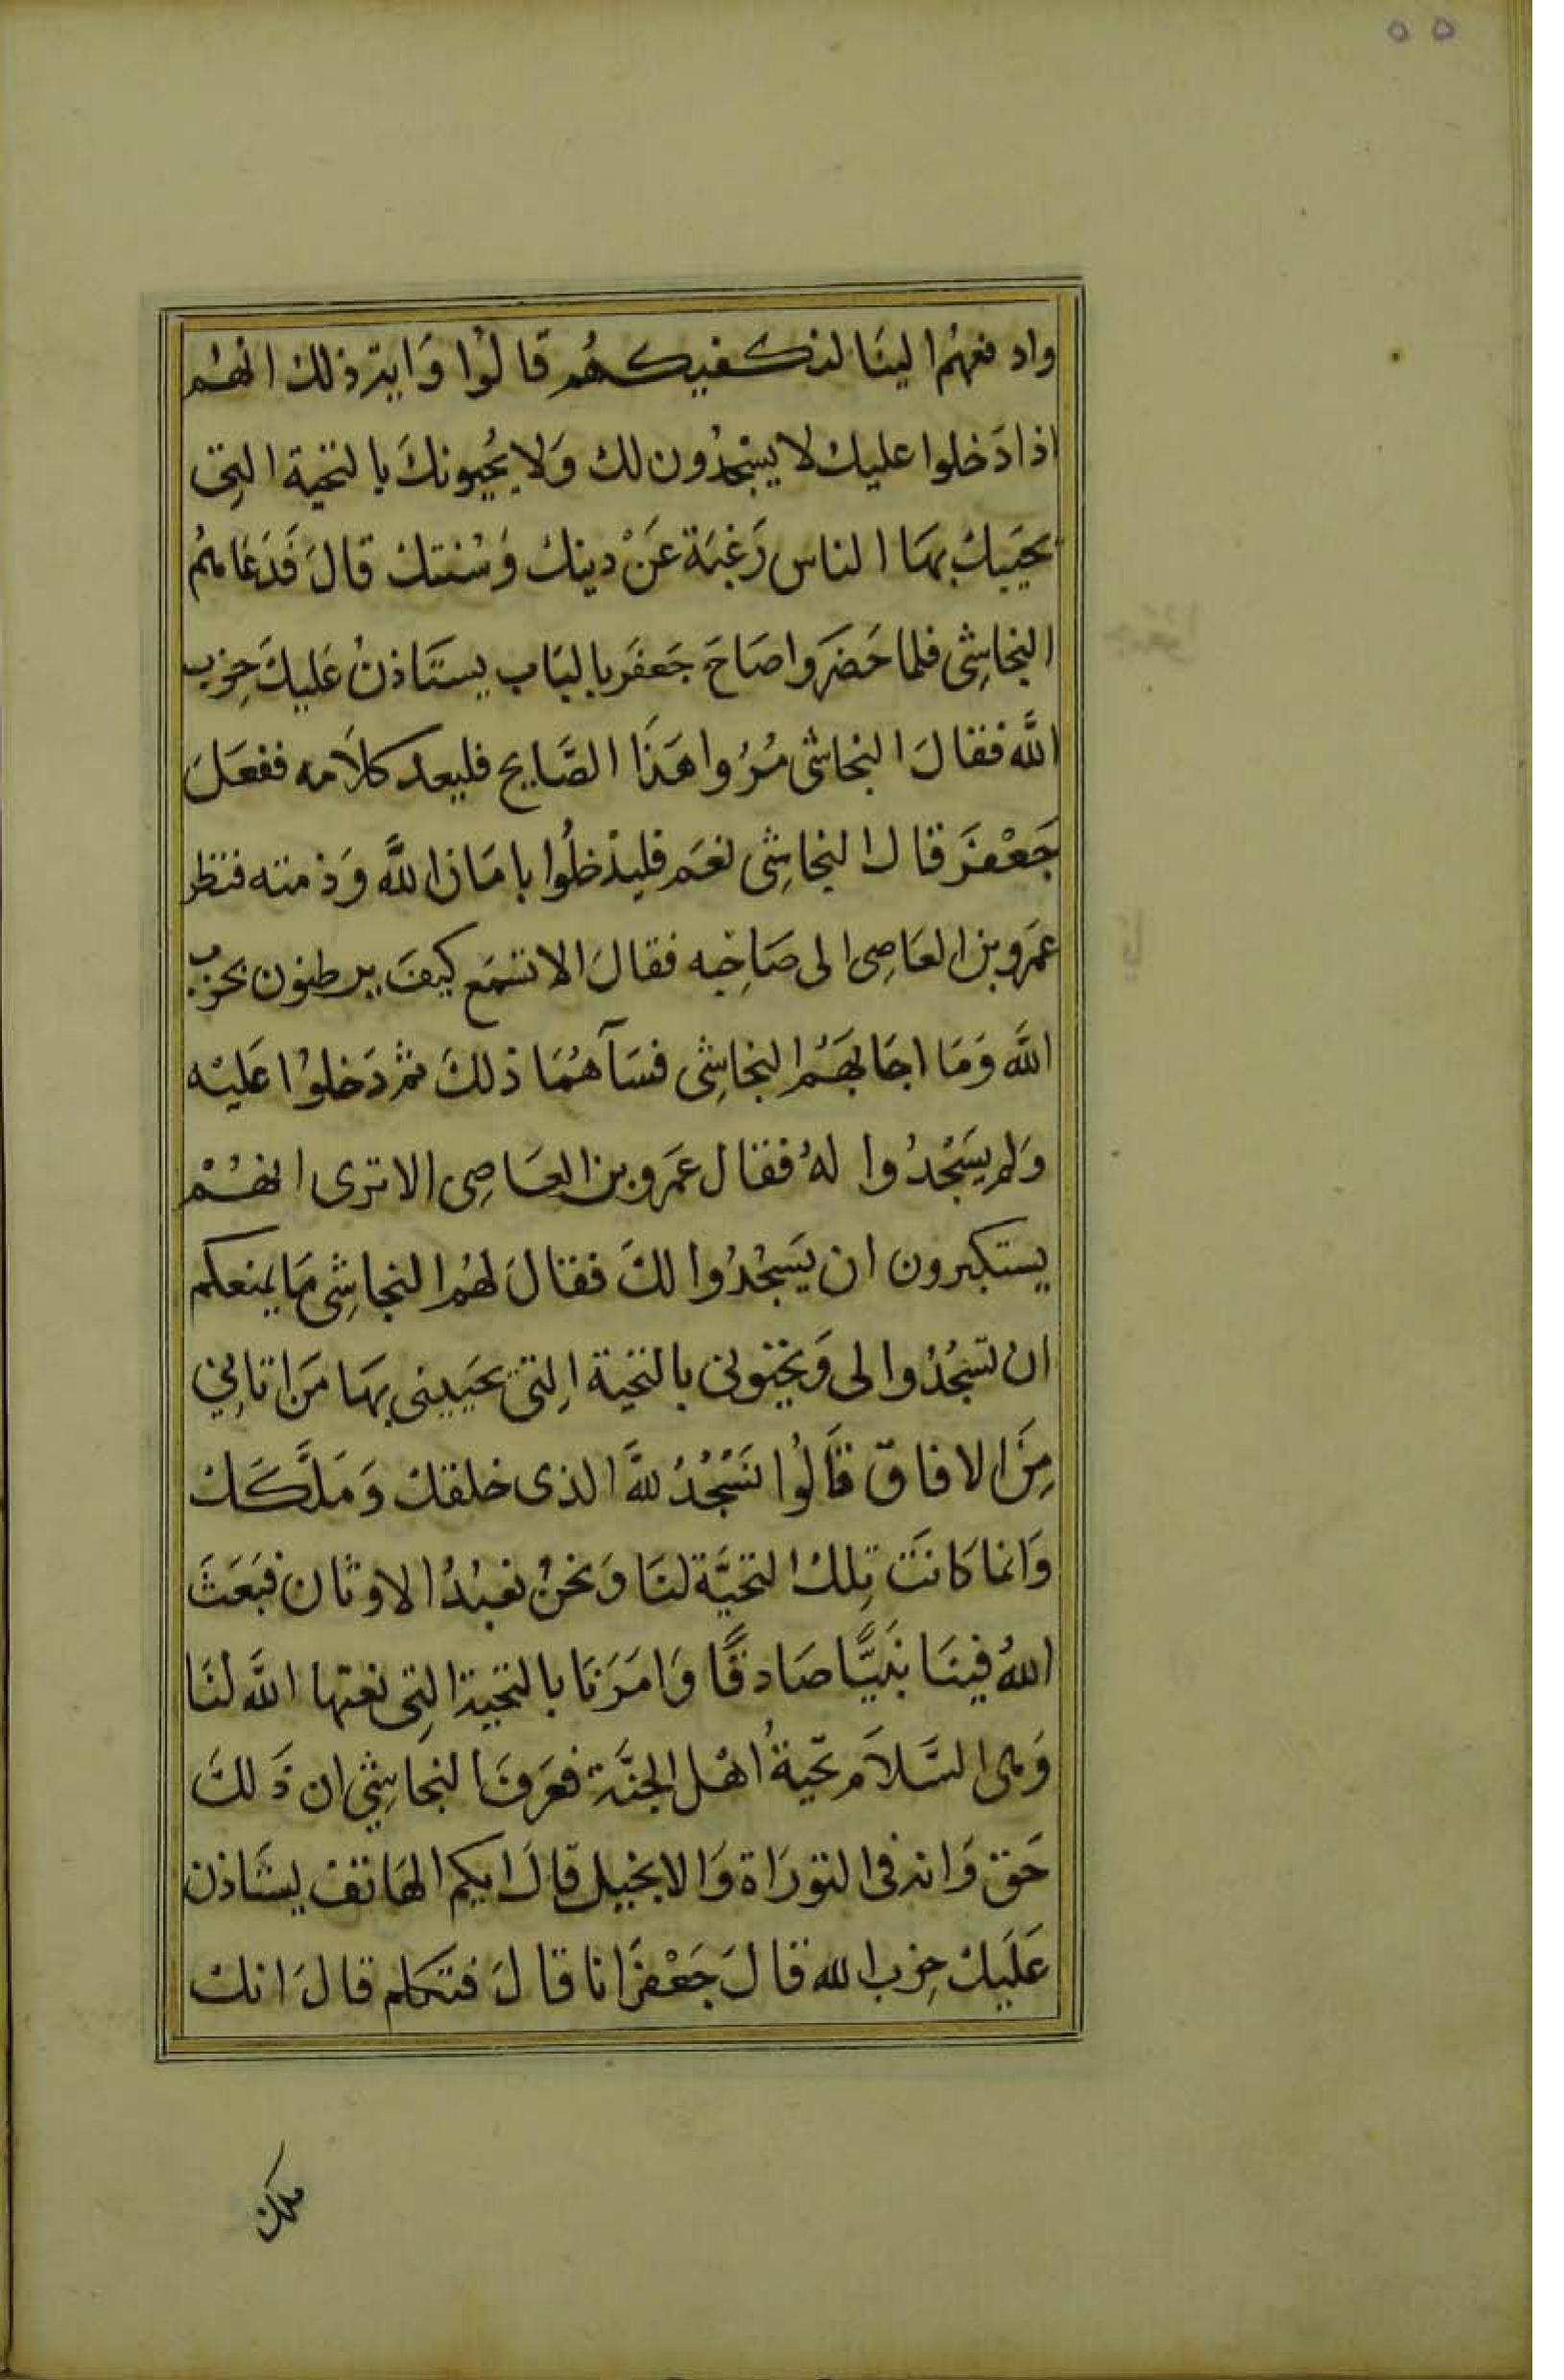 ٥٥
وادفعهُم الينَا لنكفيكهُم قالوُا وَاية ذلك انهُم
اذا دَخلوا عليك لا يسْجدُون لك وَلا يُحيونكَ بالتحية التِى
يحيَيك بهَا الناس رَغبَة عَنْ دينك وَسُنتك قالَ فَدَعَاهُم
النجاشِى فلما حَضَروا صَاحَ جَعفَر بالبَاب يستَاذنُ عَليكَ حِزب
اللَّه فقالَ النجاشى مُرُوا هَذَا الصَّايح فليعد كلاَمه ففعَلَ
جَعْفَر قال النجاشِى نعَم فليدْخلُوا بامَان اللَّه وَذمته فنظر
عَمرو بن العَاصِى الى صَاحِبه فقالَ الا تسْمَع كيفَ يرطنون بحزب
اللَّه وَمَا اجَابهَمُ النجاشِى فسَآهُمَا ذلكَ ثم دَخلوُا عَليْه
وَلم يسَجْدُوا لهُ فقال عَمرو بن العَاصِى الا ترى انهُمْ
يستكبرون ان يَسجْدُوا لكَ فقالَ لهُم النجاشِى مَا يمنعكم
ان تسجُدُوا لى وَتحيَّونى بالتحية التِى يحَيينى بهَا مَن اتانِي
مِنَ الافاق قالُوا نسْجُدُ للَّه الذى خلقك وَمَلَّكَك
وَانما كانتَ تِلك التحيَّة لنَا وَنحنُ نعْبدُ الاوثان فبَعَثَ
اللهُ فينَا نبيًّا صَادقًا وَامَرَنَا بالتحية التِى نعتها اللَّه لنَا
وَهى السَّلاَم تحيةُ اهْل الجنَّة فعَرَفَ النجاشِي ان ذَلكَ
حَق وَانه فى التورَاة وَالانجيل قالَ ايكم الهَاتف يسَتاذن
عَلَيك حِزب الله قالَ جَعْفَر انا قالَ فتكلم قالَ انك
ملك